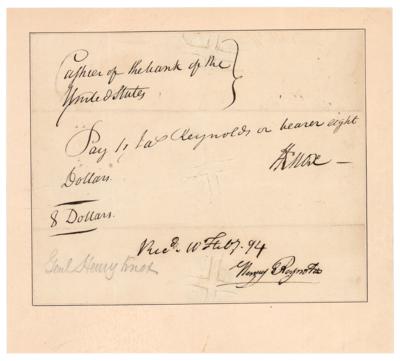 Cashier of the bank of the
United States
Pay to Jas Reynolds or bearer eight
Dollars.
HKnox
8 Dollars.
Recd. 10 Feby. 94
Genl Henry Knox
Reynolds